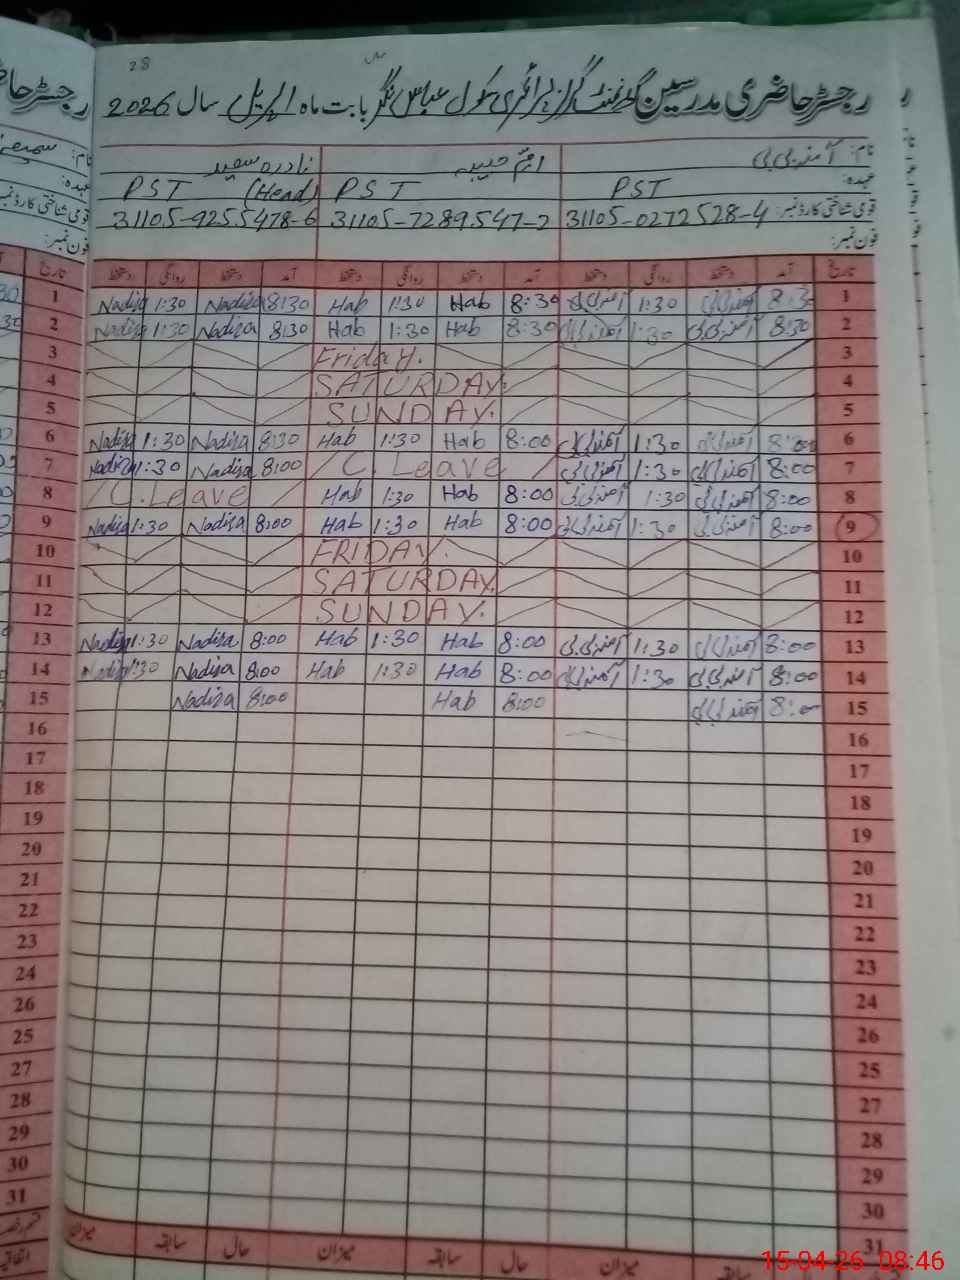 28
رجسٹر حاضری مدرسین گورنمنٹ گرلز پرائمری سکول عباس نگر بابت ماہ اپریل سال 2026
نام: آمنہ بی بی ام حبیبہ نادرہ سعید
عہدہ: PST PST PST (Head)
قومی شناختی کارڈ نمبر: 31105-0272528-4 31105-7289547-2 31105-9255478-6
فون نمبر:
تاریخ آمد دستخط روانگی دستخط آمد دستخط روانگی دستخط آمد دستخط روانگی دستخط تاریخ
1 Nadira 1:30 Nadira 8:30 Hab 1:30 Hab 8:30 آمنہ بی بی 1:30 آمنہ بی بی 8:30 1
2 Nadira 1:30 Nadira 8:30 Hab 1:30 Hab 8:30 آمنہ بی بی 1:30 آمنہ بی بی 8:30 2
3 Friday. 3
4 SATURDAY. 4
5 SUNDAY. 5
6 Nadira 1:30 Nadira 8:30 Hab 1:30 Hab 8:00 آمنہ بی بی 1:30 آمنہ بی بی 8:00 6
7 Nadira 1:30 Nadira 8:00 /C. Leave/ آمنہ بی بی 1:30 آمنہ بی بی 8:00 7
8 /C. Leave/ Hab 1:30 Hab 8:00 آمنہ بی بی 1:30 آمنہ بی بی 8:00 8
9 Nadira 1:30 Nadira 8:00 Hab 1:30 Hab 8:00 آمنہ بی بی 1:30 آمنہ بی بی 8:00 9
10 FRIDAY. 10
11 SATURDAY. 11
12 SUNDAY. 12
13 Nadira 1:30 Nadira 8:00 Hab 1:30 Hab 8:00 آمنہ بی بی 1:30 آمنہ بی بی 8:00 13
14 Nadira 1:30 Nadira 8:00 Hab 1:30 Hab 8:00 آمنہ بی بی 1:30 آمنہ بی بی 8:00 14
15 Nadira 8:00 Hab 8:00 آمنہ بی بی 8:00 15
16 16
17 17
18 18
19 19
20 20
21 21
22 22
23 23
24 24
26 26
25 25
27 27
28 28
29 29
30 30
31 31
میزان سابقہ حال میزان سابقہ حال میزان سابقہ
15-04-26 08:46